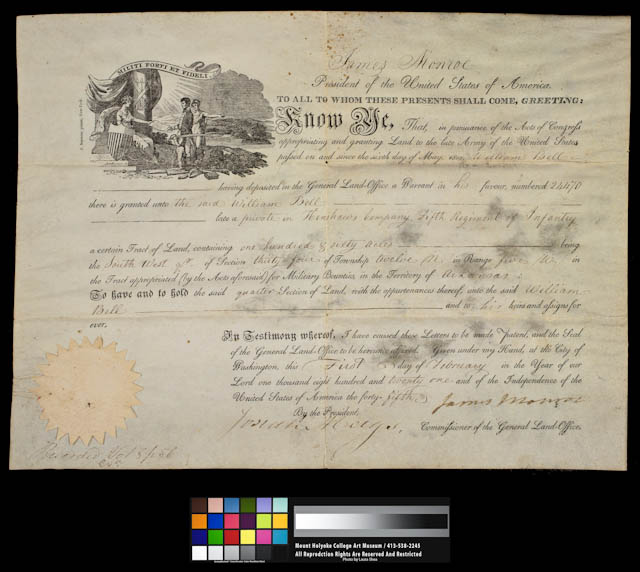 MILITI FORTI ET FIDELI.
James Monroe
President of the United States of America.
TO ALL TO WHOM THESE PRESENTS SHALL COME, GREETING:
Know Ye, That, in pursuance of the Acts of Congress
appropriating and granting Land to the late Army of the United States
passed on and since the sixth day of May, 1812, William Bell
having deposited in the General Land-Office a Warrant in his favour, numbered 24470
there is granted unto the said William Bell
late a private in Henshaw's Company, Fifth Regiment of Infantry
a certain Tract of Land, containing one hundred & sixty acres being
the South West qr. of Section thirty four of Township twelve N. in Range five W. in
the Tract appropriated (by the Acts aforesaid) for Military Bounties, in the Territory of Arkansas:
To have and to hold the said quarter Section of Land, with the appurtenances thereof, unto the said William
Bell and to his heirs and assigns for
ever.
In Testimony whereof, I have caused these Letters to be made Patent, and the Seal
of the General Land-Office to be hereunto affixed. Given under my Hand, at the City of
Washington, this First day of February in the Year of our
Lord one thousand eight hundred and twenty one and of the Independence of the
United States of America the forty fifth.
James Monroe
By the President,
Josiah Meigs, Commissioner of the General Land-Office.
Recorded Vol
Mount Holyoke College Art Museum / 413-538-2245
All Reproduction Rights Are Reserved And Restricted
Photo by Laura Shea